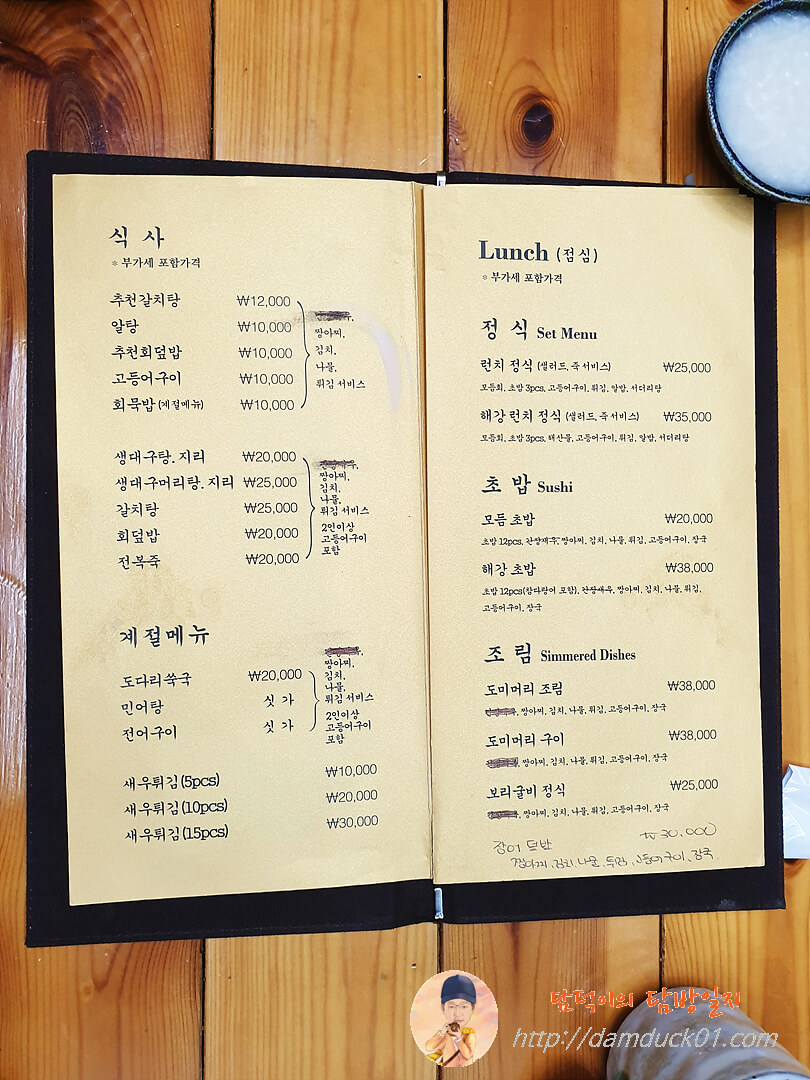 식 사
* 부가세 포함가격
추천갈치탕 ₩12,000
알탕 ₩10,000
추천회덮밥 ₩10,000
고등어구이 ₩10,000
회묵밥 (계절메뉴) ₩10,000
짱아찌,
김치,
나물,
튀김 서비스
생대구탕. 지리 ₩20,000
생대구머리탕. 지리 ₩25,000
갈치탕 ₩25,000
회덮밥 ₩20,000
전복죽 ₩20,000
짱아찌,
김치,
나물,
튀김 서비스
2인이상
고등어구이
포함
계절메뉴
도다리쑥국 ₩20,000
민어탕 싯 가
전어구이 싯 가
짱아찌,
김치,
나물,
튀김 서비스
2인이상
고등어구이
포함
새우튀김(5pcs) ₩10,000
새우튀김(10pcs) ₩20,000
새우튀김(15pcs) ₩30,000
Lunch (점심)
* 부가세 포함가격
정 식 Set Menu
런치 정식 (샐러드. 죽 서비스) ₩25,000
모듬회, 초밥 3pcs, 고등어구이, 튀김, 알밥, 서더리탕
해강 런치 정식 (샐러드. 죽 서비스) ₩35,000
모듬회, 초밥 3pcs, 해산물, 고등어구이, 튀김, 알밥, 서더리탕
초 밥 Sushi
모듬 초밥 ₩20,000
초밥 12pcs, 간장새우, 짱아찌, 김치, 나물, 튀김, 고등어구이, 장국
해강 초밥 ₩38,000
초밥 12pcs(참다랑어 포함), 간장새우, 짱아찌, 김치, 나물, 튀김,
고등어구이, 장국
조 림 Simmered Dishes
도미머리 조림 ₩38,000
짱아찌, 김치, 나물, 튀김, 고등어구이, 장국
도미머리 구이 ₩38,000
짱아찌, 김치, 나물, 튀김, 고등어구이, 장국
보리굴비 정식 ₩25,000
짱아찌, 김치, 나물, 튀김, 고등어구이, 장국
장어 덮밥 ₩30,000
짱아찌, 김치, 나물, 튀김, 고등어구이, 장국
담덕이의 탐방일지
http://damduck01.com